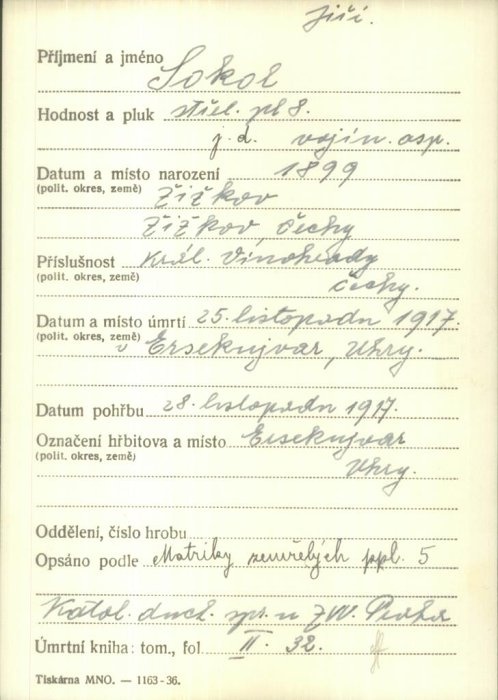 Jiří.
Příjmení a jméno Sokol
Hodnost a pluk střel. pl 8.
j. d. vojín. asp.
Datum a místo narození 1899
(polit. okres, země) Žižkov
Žižkov, Čechy
Příslušnost Král. Vinohrady
(polit. okres, země) Čechy.
Datum a místo úmrtí 25. listopadu 1917.
(polit. okres, země) v Ersekujvar, Uhry.
Datum pohřbu 28. listopadu 1917.
Označení hřbitova a místo Ersekujvar
(polit. okres, země) Uhry.
Oddělení, číslo hrobu
Opsáno podle Matriky zemřelých ppl. 5
Katol. duch. spr. u ZVV. Praha
Úmrtní kniha: tom., fol II. 32.
Tiskárna MNO. — 1163-36.